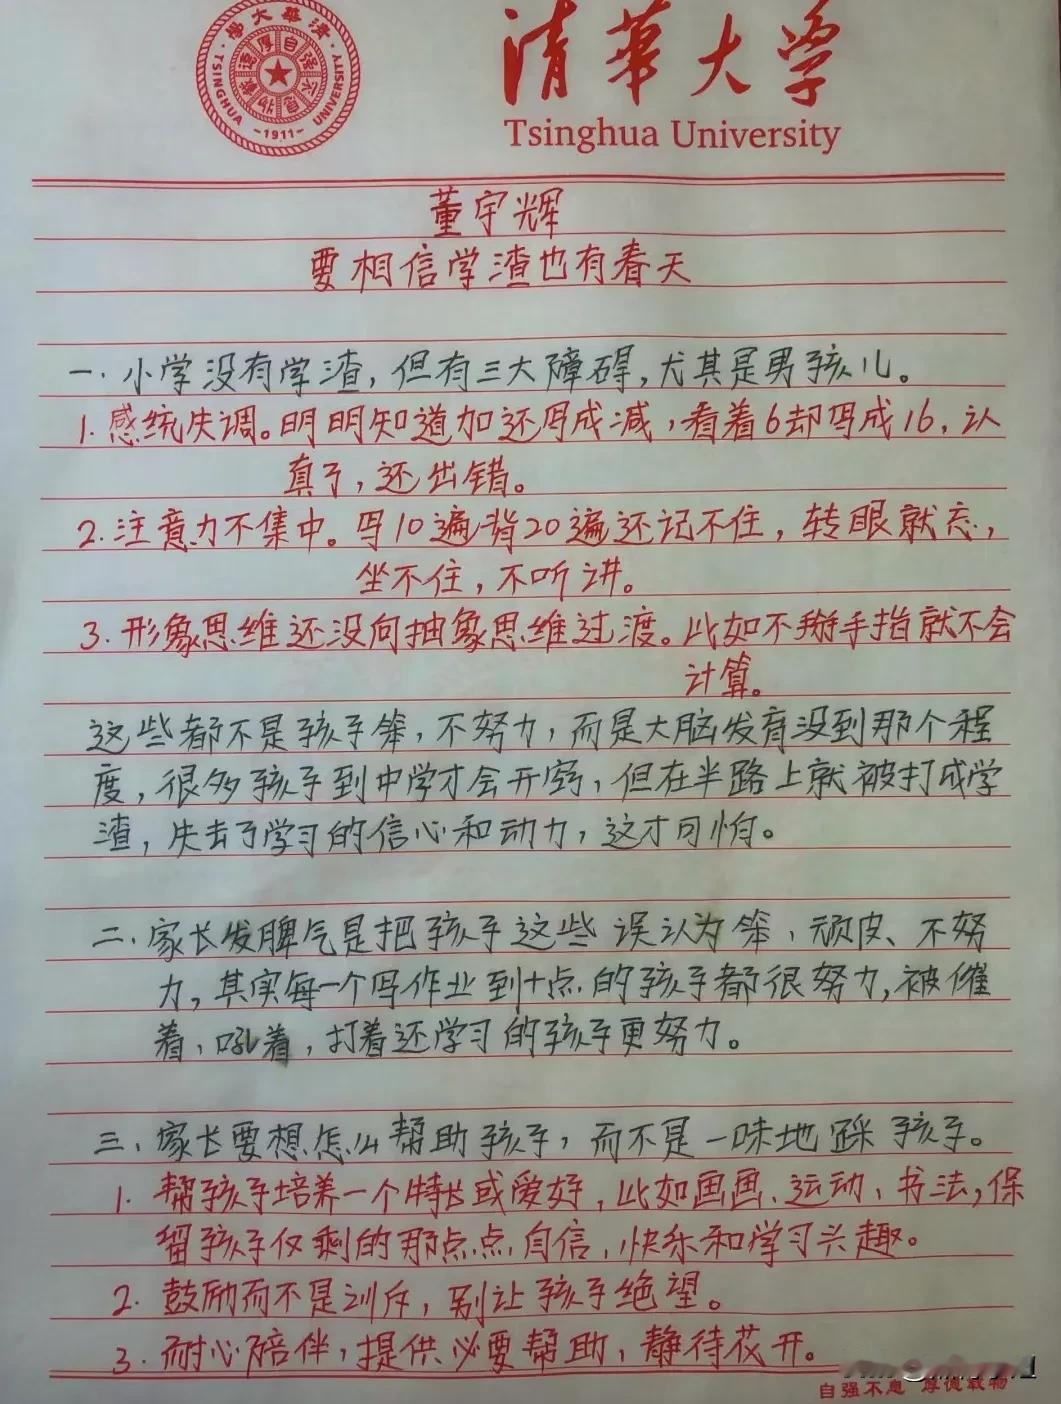 清華大學
TSINGHUA UNIVERSITY
自强不息
厚德載物
-1911-
清華大学
Tsinghua University
董宇辉
要相信学渣也有春天
一.小学没有学渣,但有三大障碍,尤其是男孩儿。
1.感统失调。明明知道加还写成减,看着6却写成16,认
真了,还出错。
2.注意力不集中。写10遍背20遍还记不住,转眼就忘,
坐不住,不听讲。
3.形象思维还没向抽象思维过渡。比如不掰手指就不会
计算。
这些都不是孩子笨,不努力,而是大脑发育没到那个程
度,很多孩子到中学才会开窍,但在半路上就被打成学
渣,失去了学习的信心和动力,这才可怕。
二、家长发脾气是把孩子这些误认为笨、顽皮、不努
力,其实每一个写作业到十点的孩子都很努力,被催
着,吼着,打着还学习的孩子更努力。
三、家长要想怎么帮助孩子,而不是一味地踩孩子。
1.帮孩子培养一个特长或爱好,比如画画、运动、书法,保
留孩子仅剩的那点点自信,快乐和学习兴趣。
2.鼓励而不是训斥,别让孩子绝望。
3.耐心陪伴,提供必要帮助,静待花开。
自强不息 厚德载物